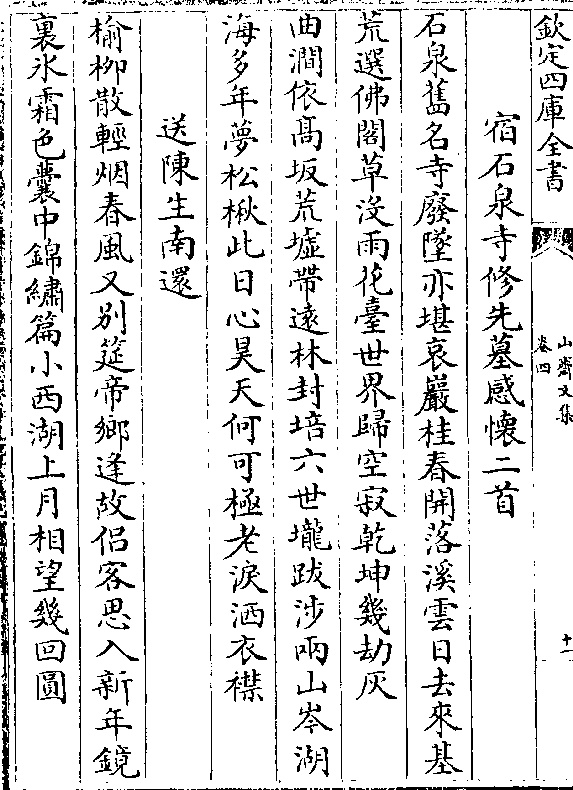 欽定四庫全書
山齋文集
卷四
十一
宿石泉寺修先墓感懷二首
石泉舊名寺廢墜亦堪哀巖桂春開落溪雲日去來基
荒選佛閣草沒雨花臺世界歸空寂乾坤幾劫灰
曲澗依髙坂荒墟帶逺林封培六世壠跋涉兩山岑湖
海多年夢松楸此日心昊天何可極老淚洒衣襟
送陳生南還
榆栁散輕烟春風又别筵帝鄉逢故侣客思入新年鏡
裏氷霜色囊中錦繡篇小西湖上月相望幾回圓